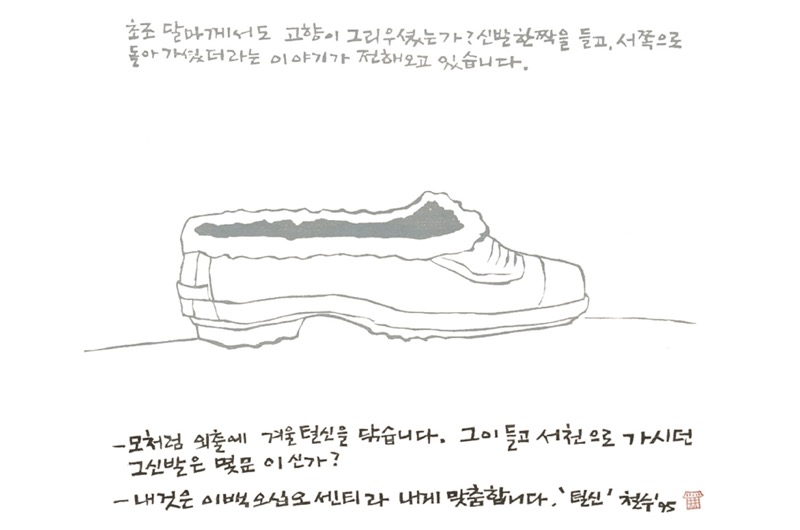 초조 달마께서도 고향이 그리우셨는가? 신발 한짝을 들고, 서쪽으로
돌아가셨더라는 이야기가 전해오고 있습니다.
-모처럼 외출에 겨울털신을 닦습니다. 그이 들고 서천으로 가시던
그신발은 몇문 이신가?
-내것은 이백오십오센티라 내게 맞춤합니다. '털신' 철수 '95